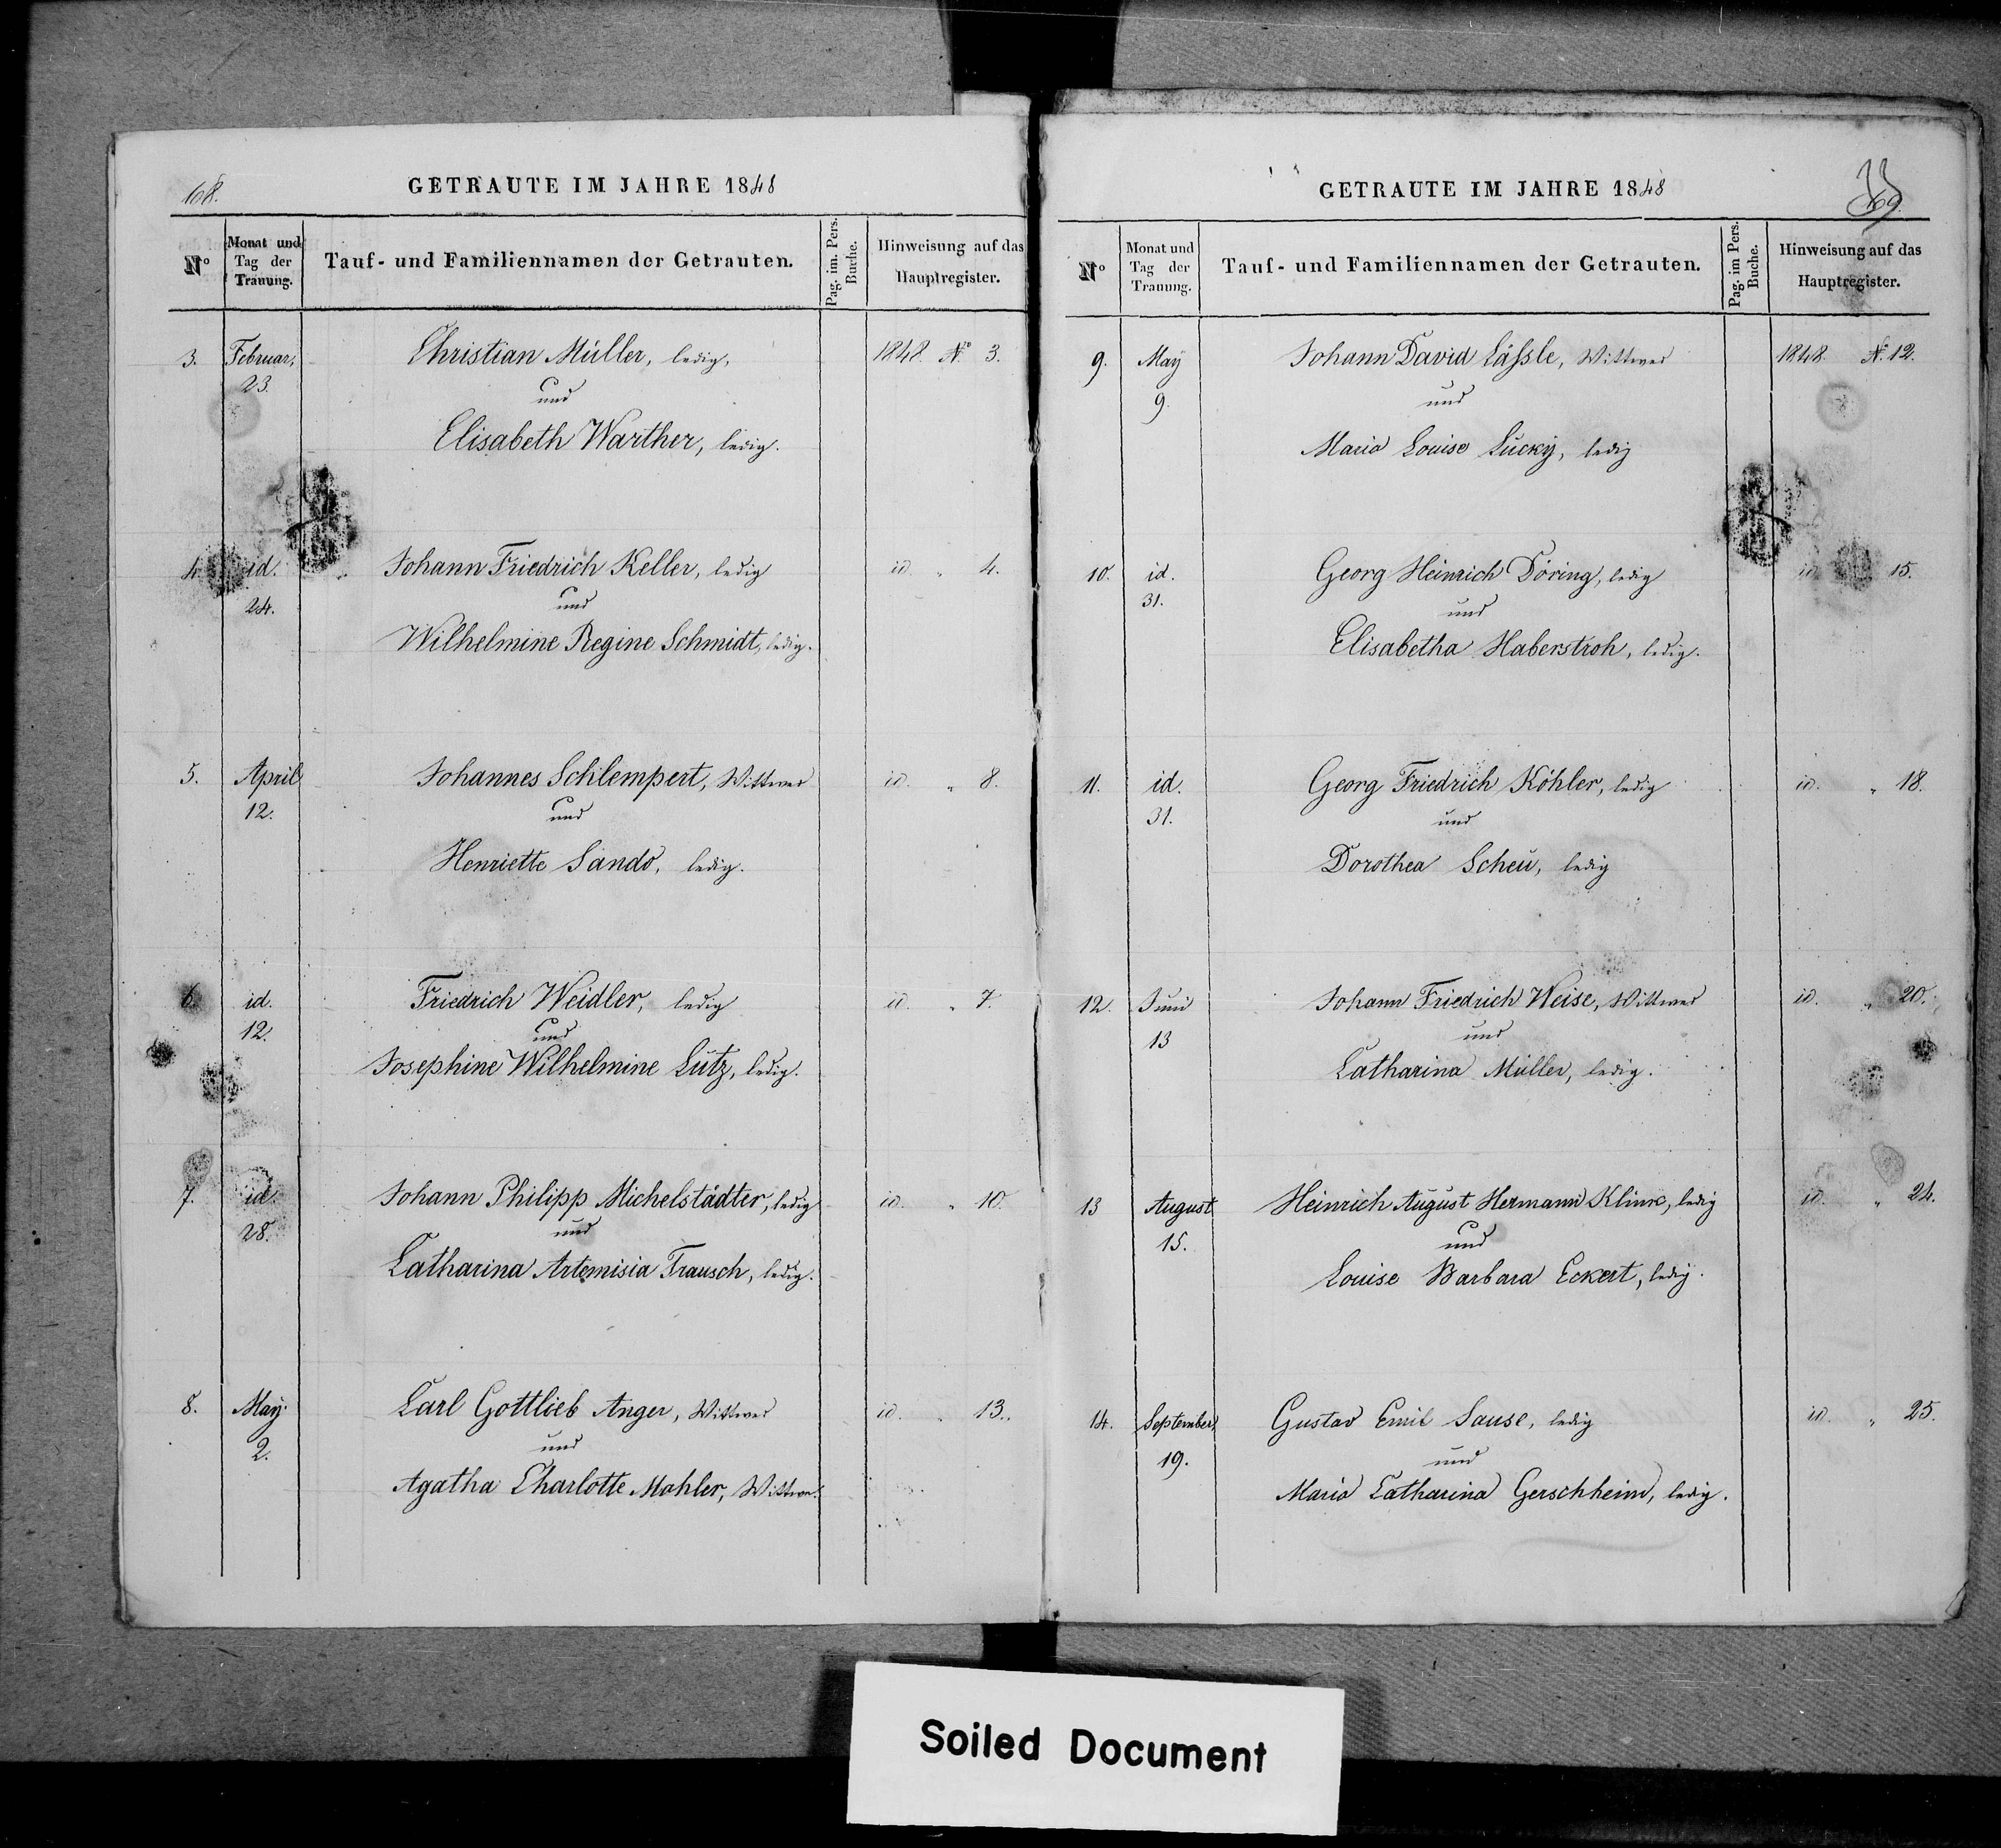 68.
GETRAUTE IM JAHRE 1848
Nº
Monat und
Tag der
Trauung.
Tauf- und Familiennamen der Getrauten.
Pag. im. Pers.
Buche.
Hinweisung auf das
Hauptregister.
3. Februar, Christian Müller, ledig, 1848. Nº 3.
23.
und
Elisabeth Warther, ledig.
4. id. Johann Friedrich Keller, ledig id. " 4.
24.
und
Wilhelmine Regine Schmidt, ledig.
5. April Johannes Schlempert, Wittwer id. " 8.
12.
und
Henriette Sando, ledig.
6. id. Friedrich Weidler, ledig id " 7.
12.
und
Josephine Wilhelmine Lutz, ledig.
7. id. Johann Philipp Michelstädter, ledig id. " 10.
28.
und
Catharina Artemisia Trausch, ledig.
8. May. Carl Gottlieb Anger, Wittwer id. " 13.
2.
und
Agatha Charlotte Mahler, Wittwe.
GETRAUTE IM JAHRE 1848
69
Nº
Monat und
Tag der
Trauung.
Tauf- und Familiennamen der Getrauten.
Pag. im Pers.
Buche.
Hinweisung auf das
Hauptregister.
9. May Johann David Läßle, Wittwer 1848. Nº 12.
9.
und
Maria Louise Lucky, ledig
10. id. Georg Heinrich Döring, ledig id 15.
31.
und
Elisabetha Haberstroh, ledig.
11. id. Georg Friedrich Köhler, ledig id. " 18.
31.
und
Dorothea Scheu, ledig
12. Juni Johann Friedrich Weise, Wittwer id. " 20.
13
und
Catharina Müller, ledig.
13 August Heinrich August Hermann Klink, ledig id. " 24.
15.
und
Louise Barbara Eckert, ledig.
14. September, Gustav Emil Sause, ledig id. " 25.
19.
und
Maria Catharina Gerschheim, ledig.
Soiled Document